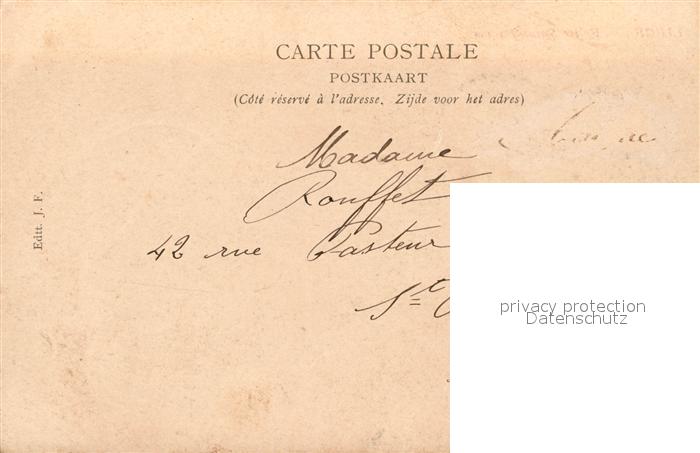 CARTE POSTALE
POSTKAART
(Côté réservé à l'adresse. Zijde voor het adres)
Madame
Rouffet
42 rue Pasteur
Ste
Edtt. J. F.
privacy protection
Datenschutz